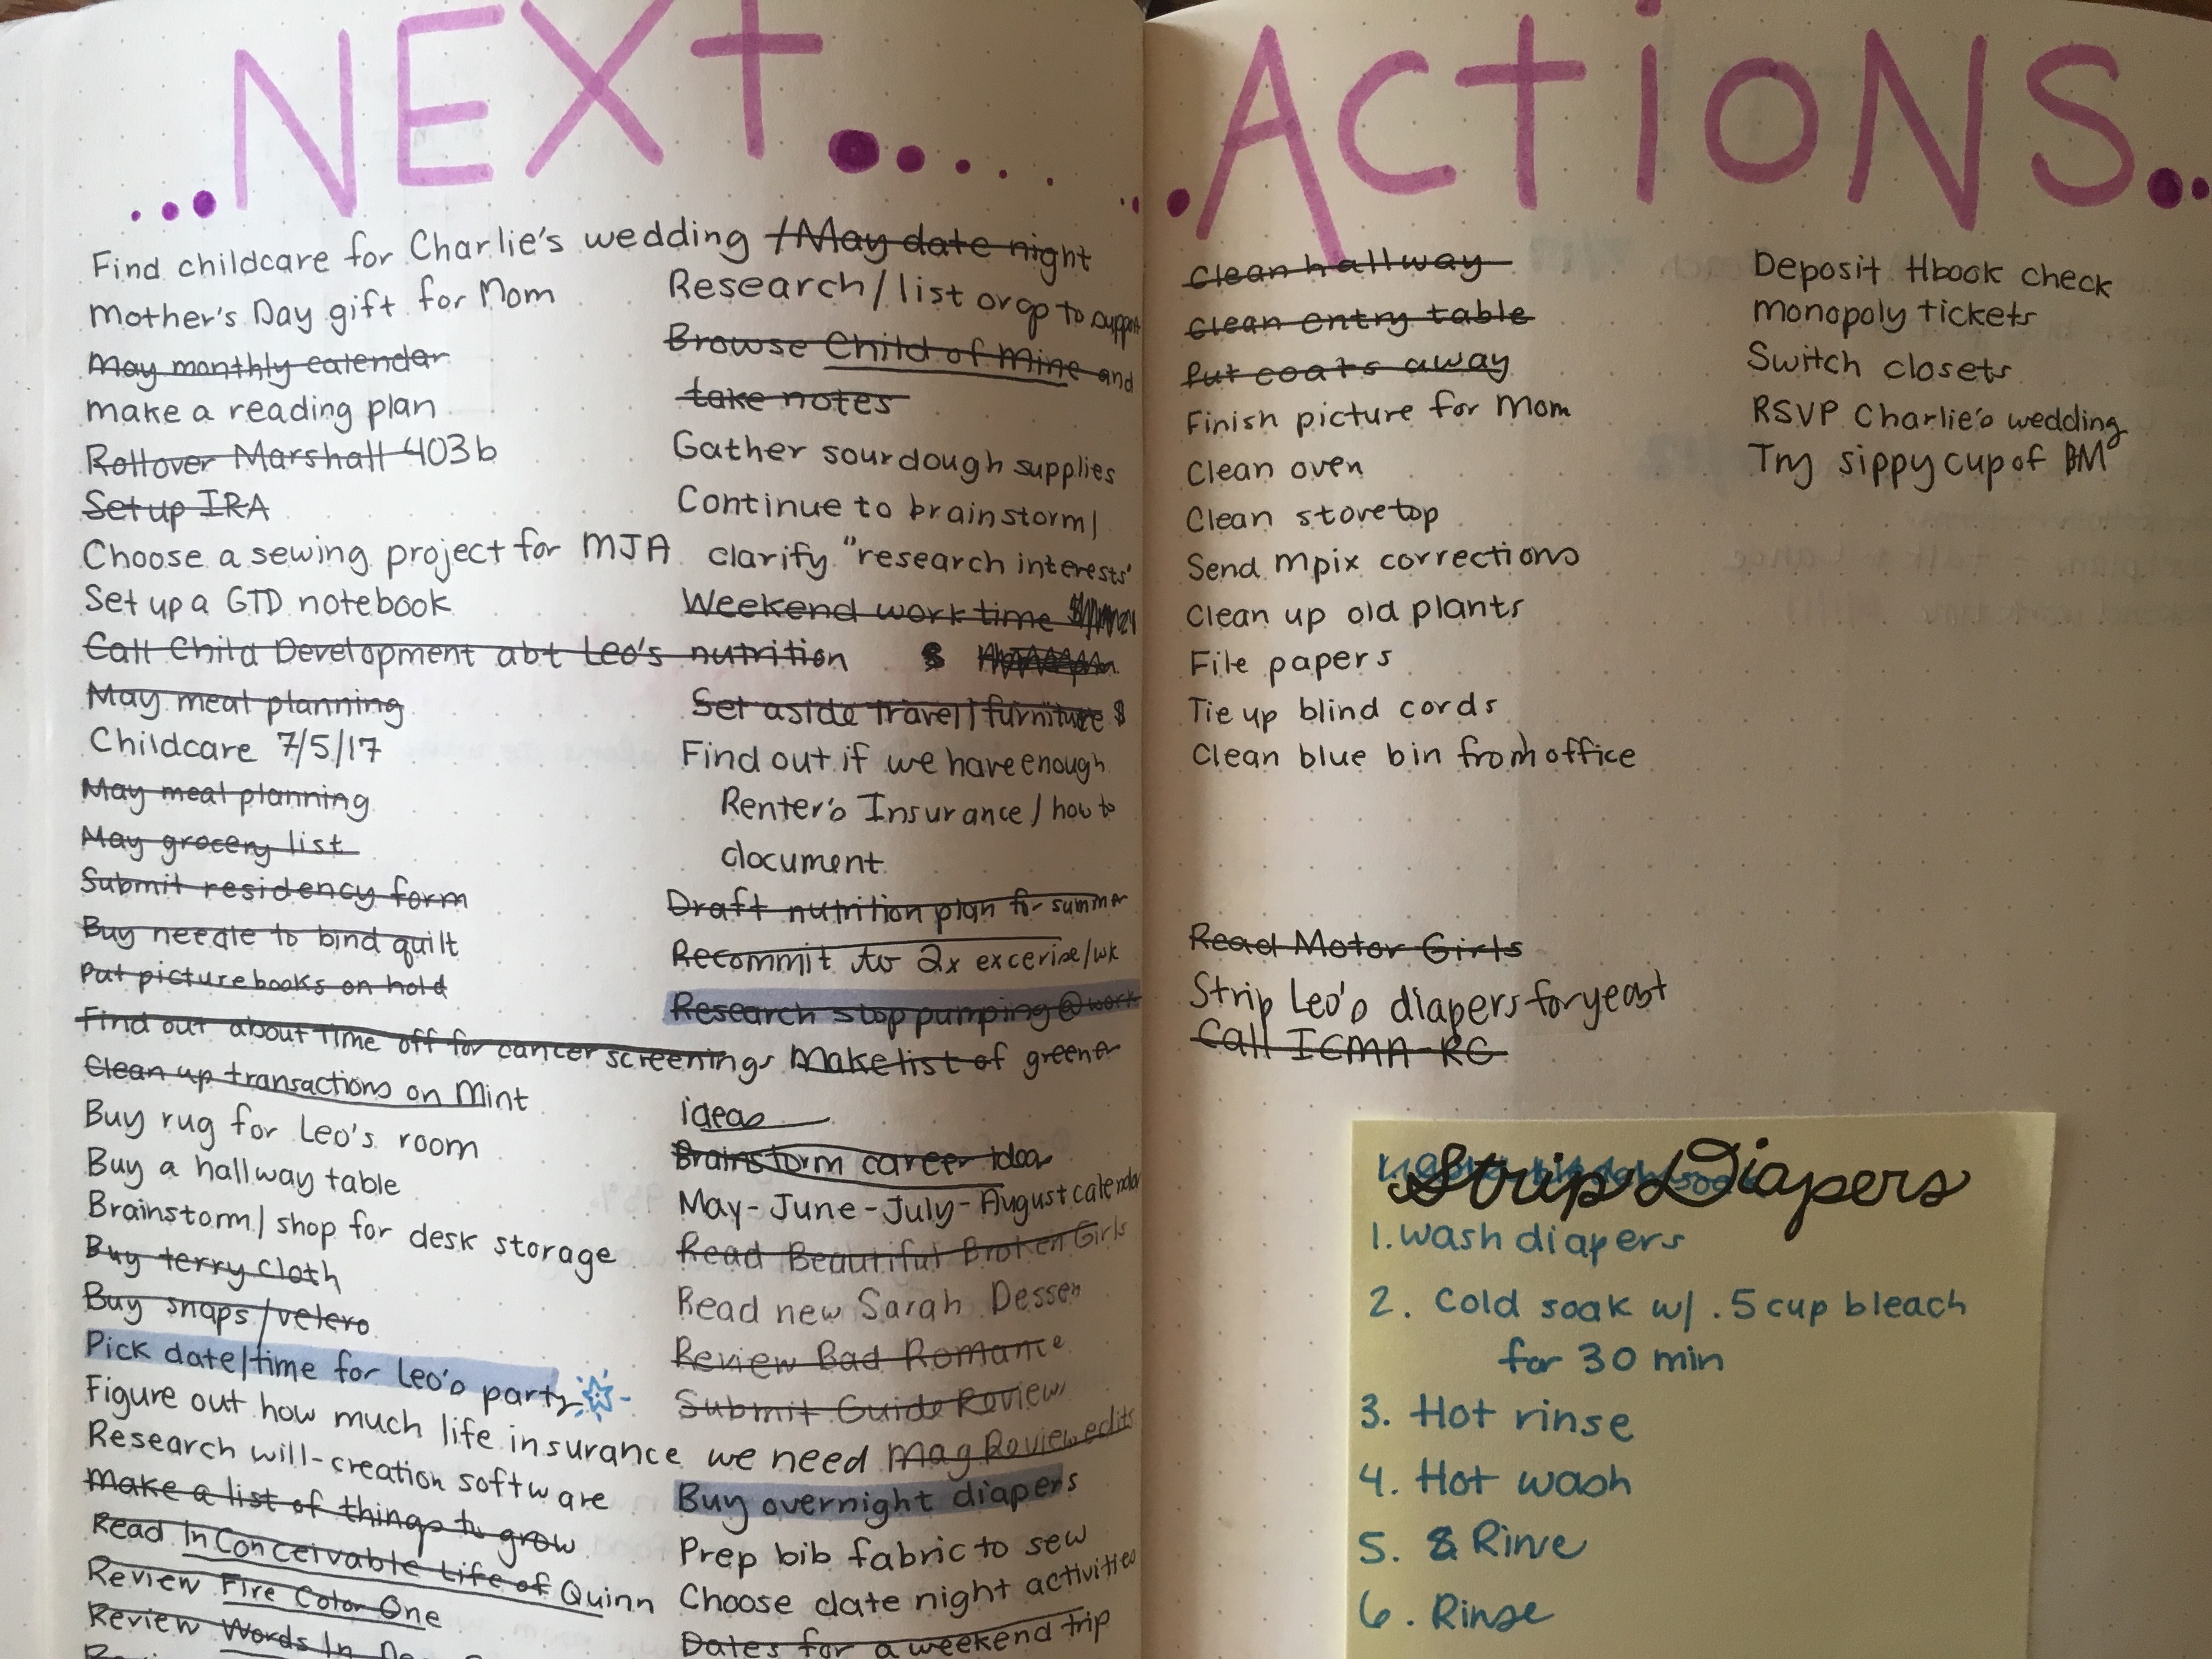 ...NEXT.....
...ACTIONS...
Find childcare for Charlie's wedding / May date night
Mother's Day gift for Mom
May monthly calendar
make a reading plan
Rollover Marshall 403b
Set up IRA
Choose a sewing project for MJA
Set up a GTD notebook
Call Child Development abt Leo's nutrition
May meal planning
Childcare 7/5/17
May meal planning
May grocery list
Submit residency form
Buy needle to bind quilt
Put picture books on hold
Find out about time off for cancer screenings
Clean up transactions on Mint
Buy rug for Leo's room
Buy a hallway table
Brainstorm/shop for desk storage
Buy terry cloth
Buy snaps/velcro
Pick date/time for Leo's party
Figure out how much life insurance we need
Research will-creation software
Make a list of things to grow
Read InConceivable Life of Quinn
Review Fire Color One
Review Words In
Research/list orgs to support
Browse Child of Mine and
take notes
Gather sourdough supplies
Continue to brainstorm/
clarify "research interests"
Weekend work time $
$
Set aside travel/furniture $
Find out if we have enough
Renter's Insurance/how to
document
Draft nutrition plan for summer
Recommit to 2x excerise/wk
Research stop pumping @ work
Make list of greener
ideas
Brainstorm career idea
May-June-July-August calendar
Read Beautiful Broken Girls
Read new Sarah Dessen
Review Bad Romance
Submit Guide Review
Mag Review edits
Buy overnight diapers
Prep bib fabric to sew
Choose date night activities
Dates for a weekend trip
Clean hallway
Clean entry table
Put coats away
Finish picture for Mom
Clean oven
Clean stovetop
Send Mpix corrections
Clean up old plants
File papers
Tie up blind cords
Clean blue bin from office
Read Motor Girls
Strip Leo's diapers for yeast
Call ICMA-RC
Deposit Hbook check
monopoly tickets
Switch closets
RSVP Charlie's wedding
Try sippy cup of BM
Strip Diapers
1. wash diapers
2. Cold soak w/ .5 cup bleach
for 30 min
3. Hot rinse
4. Hot wash
5. & Rinse
6. Rinse